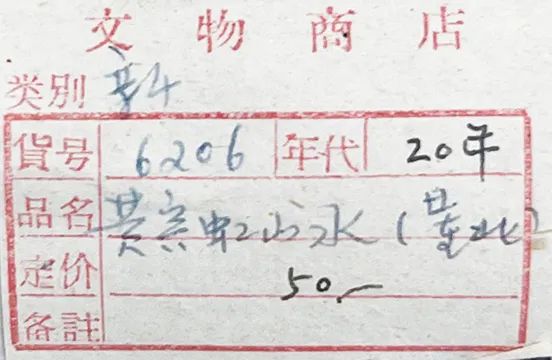 文物商店
类别
貨号 6206 年代 20年
品名 黄宾虹山水
定价 50.-
备註